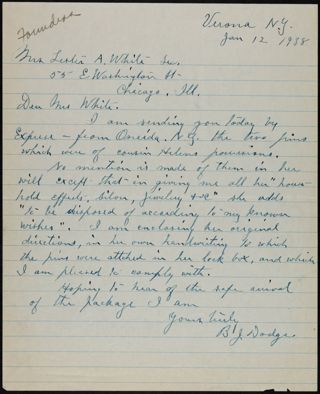 Founders
Verona N.Y.
Jan 12 1938
Mrs Leslie A. White Sec.
55 E Washington St
Chicago, Ill.
Dear Mrs White.
I am sending you today by
Express - from Oneida. N.Y. the two pins
which were of cousin Helens possessions.
No mention is made of them in her
will except that - in giving me all her "house-
hold effects, silver, jewelry &c" she adds
"to be disposed of according to my known
wishes". I am enclosing her original
directions, in her own handwriting to which
the pins were attched in her lock box, and which
I am pleased to comply with.
Hoping to hear of the safe arrival
of the package I am
Yours truly
B J Dodge